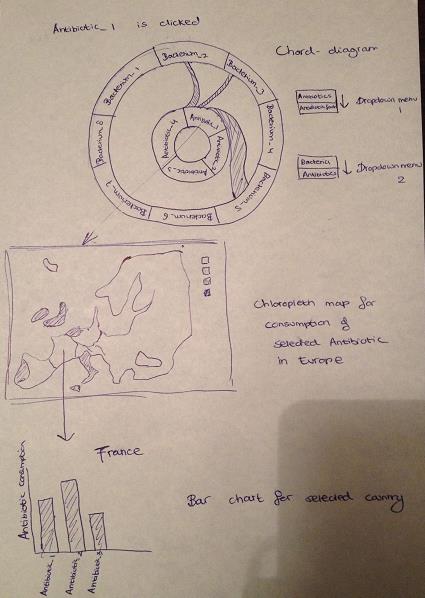 Antibiotic_1 is clicked
Chord-diagram
Bacterium_1
Bacterium_2
Bacterium_3
Bacterium_4
Bacterium_5
Bacterium_6
Bacterium_7
Bacterium_8
Antibiotic_1
Antibiotic_2
Antibiotic_3
Antibiotic_4
Antibiotics
Dropdown menu
1
Bacteria
Antibiotics
Dropdown menu
2
Chloropleth map for
consumption of
selected Antibiotic
in Europe
France
Antibiotic consumption
Antibiotic_1
Antibiotic_2
Antibiotic_3
Bar chart for selected country